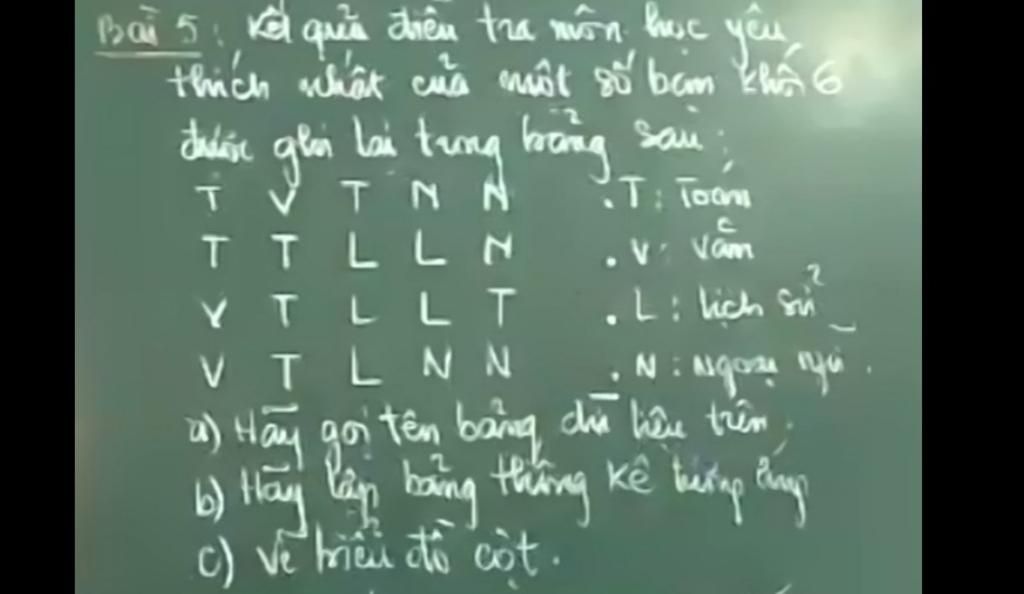 Bài 5: Kết quả điều tra môn học yêu
thích nhất của một số bạn khối 6
được ghi lại trong bảng sau:
T V T N N . T: Toán
T T L L N . V: Văn
V T L L T . L: Lịch sử
V T L N N . N: Ngoại ngữ.
a) Hãy gọi tên bảng dữ liệu trên.
b) Hãy lập bảng thống kê tương ứng
c) Vẽ biểu đồ cột.